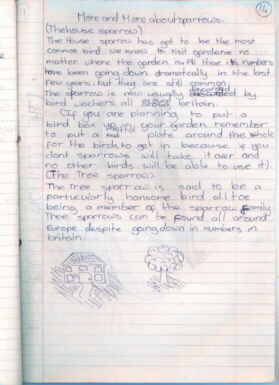 14
More and More about sparrows.
(The house sparrow)
The House sparrow has got to be the most
common bird we know to visit gardens no
matter where the garden is. All tho its numbers
have been going down dramatically in the last
few years, but they are still common.
The sparrow is now usually by
bird watchers all britain.
(If you are planning to put a
bird box up in your garden remember
to put a plate around the whole
for the birds to get in because if you
dont sparrows will take it over and
no other birds will be able to use it).
(The Tree sparrow)
The Tree sparrow is said to be a
particularly hansome bird all tho
being a member of the sparrow family.
Tree sparrows can be found all around
Europe despite going down in numbers in
britain.